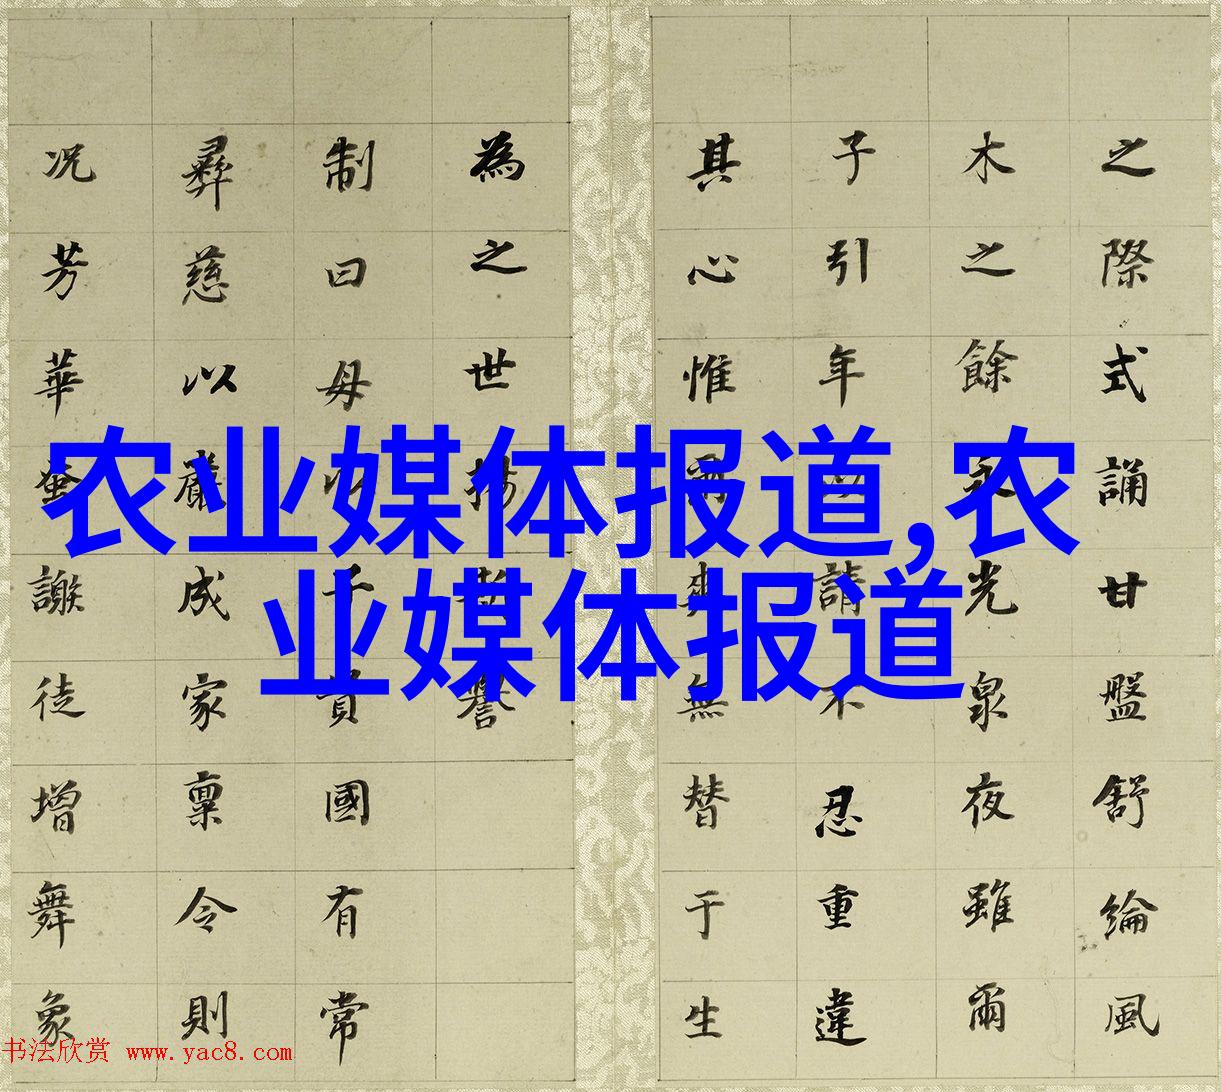 之際式誦甘盤舒綸風
木之餘永光泉夜雖爾
子引年以請不忍重違
其心惟爾無替于生
為之世揚譽
制曰母以子貴國有常
彝慈以嚴成家稟令則
況芳華蚤謝徒增舞象
农业媒体报道,农
业媒体报道
书法欣赏 www.yac8.com